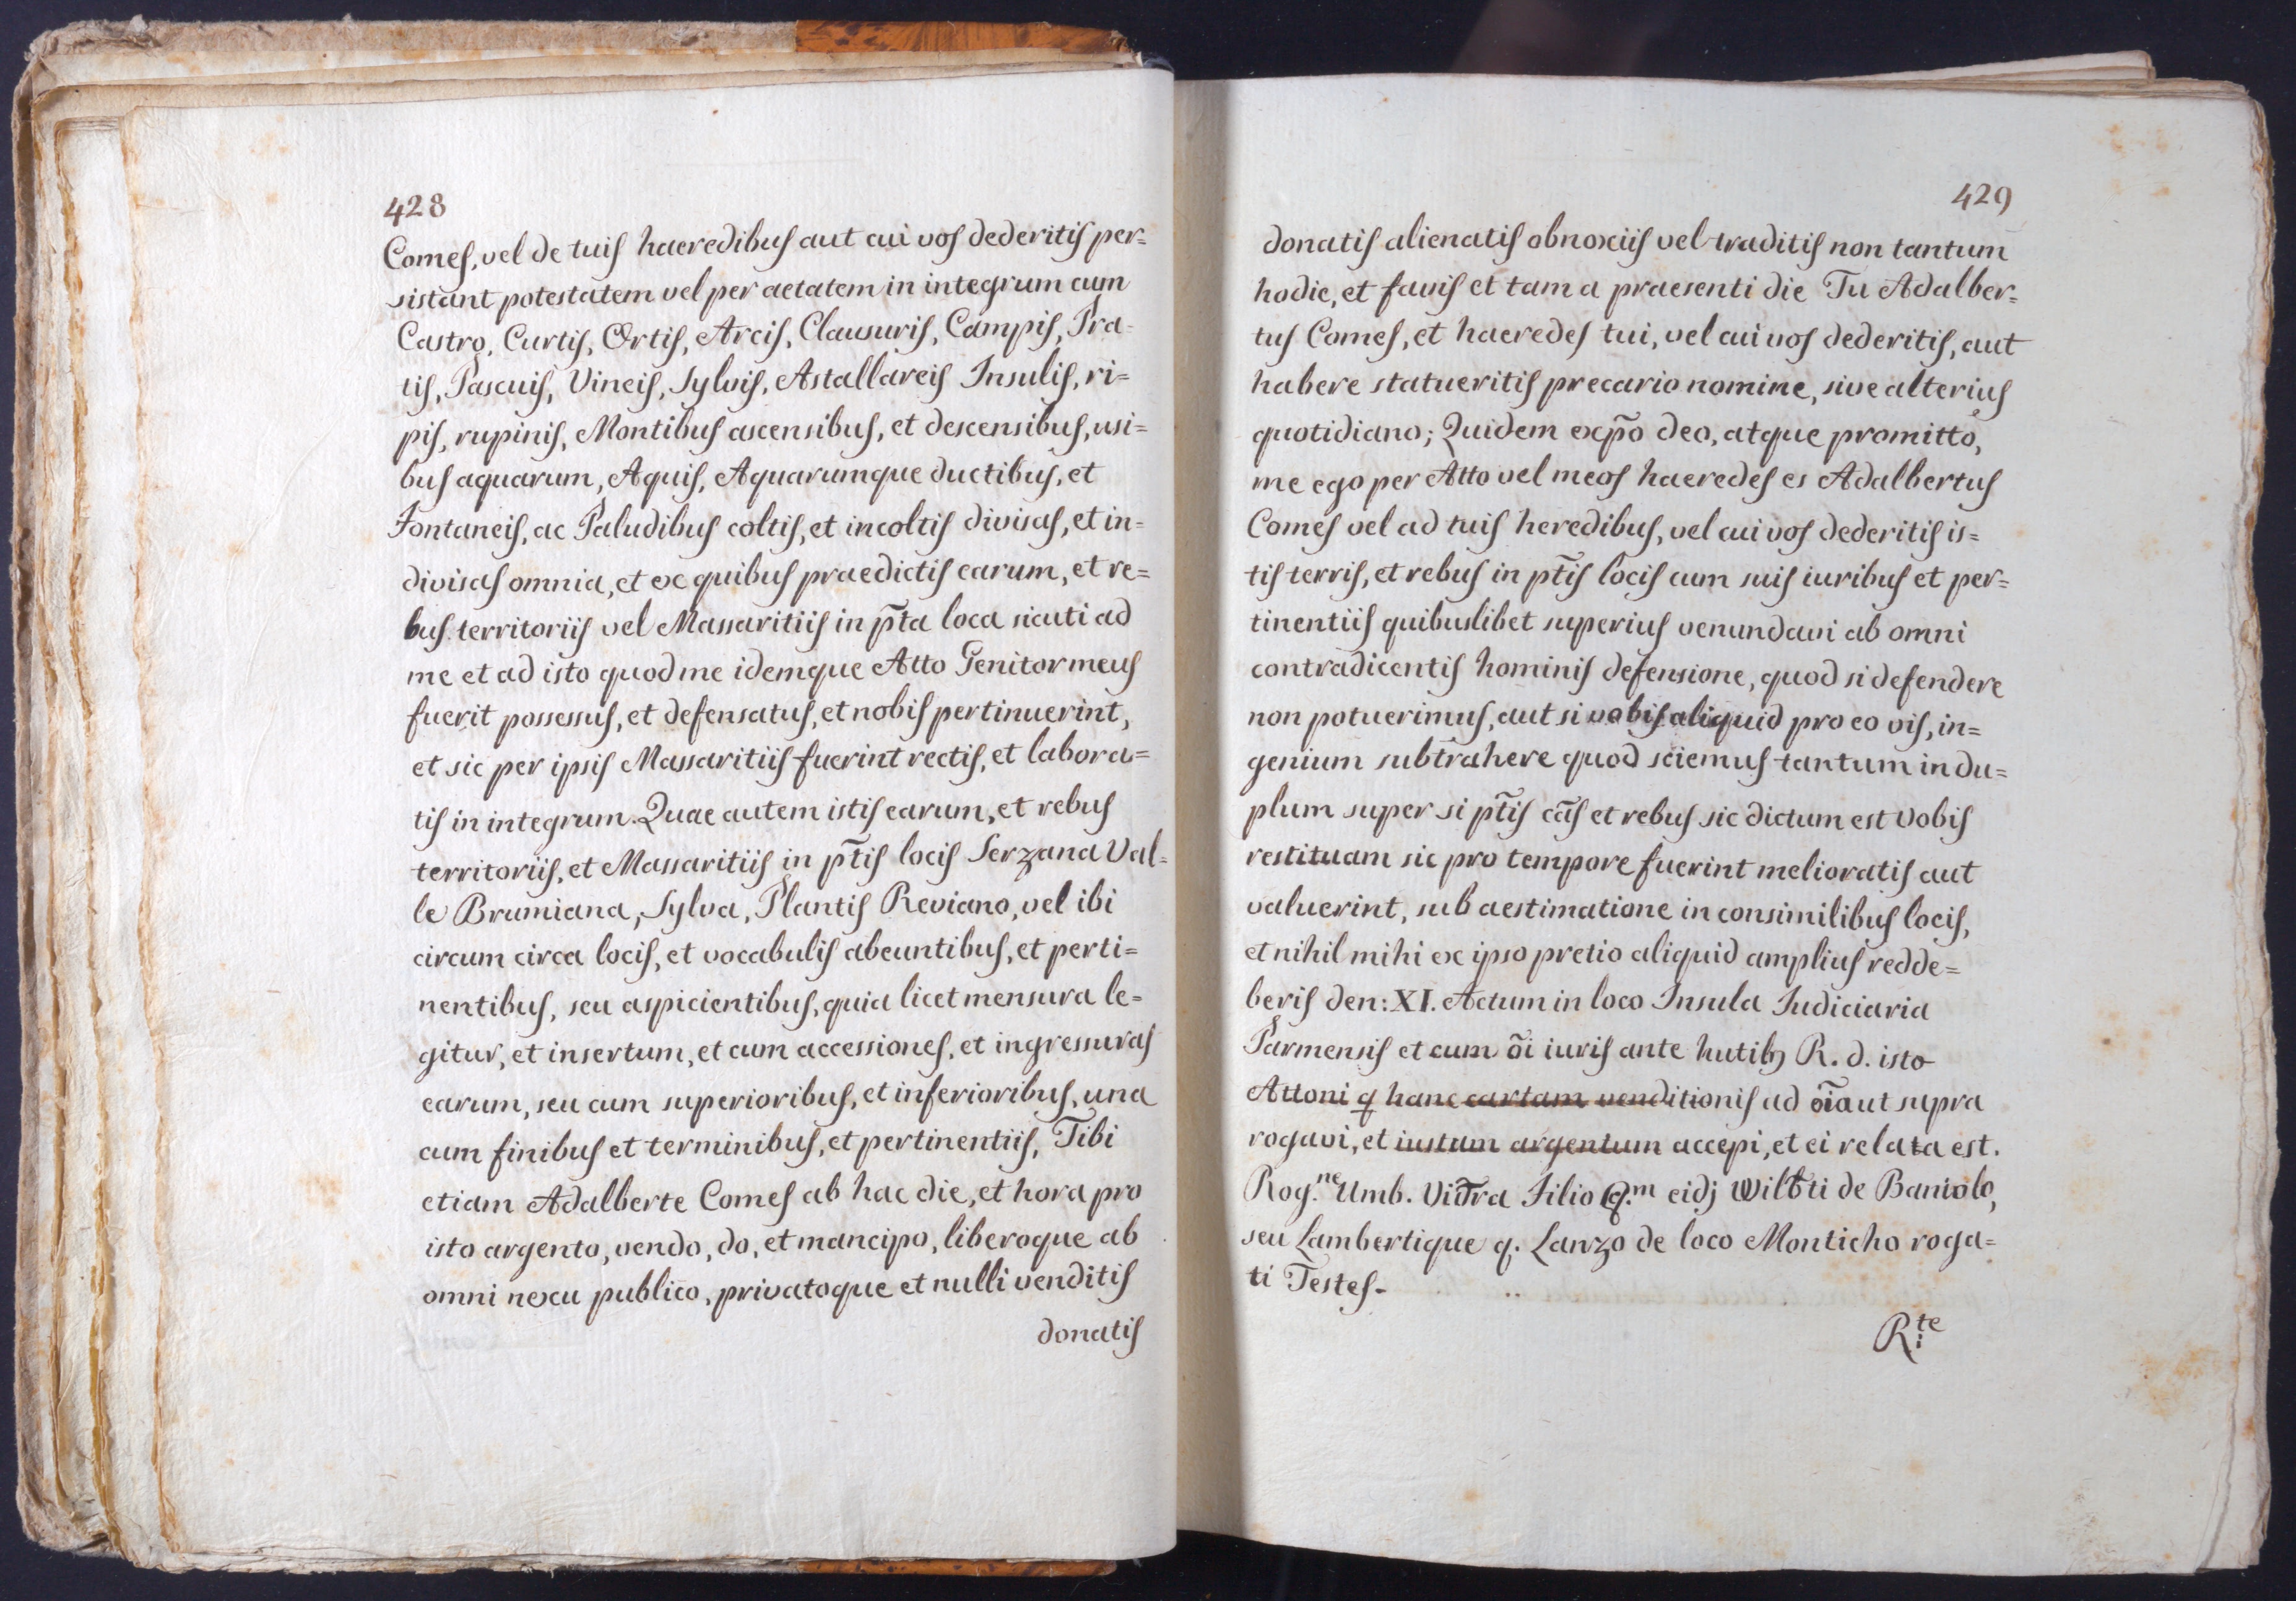 428
Comes, vel de tuis haeredibus aut cui vos dederitis per=
sistant potestatem vel per aetatem in integrum cum
Castro, Curtis, Ortis, Arcis, Clausuris, Campis, Pra=
tis, Pascuis, Vineis, Sylvis, Astallareis Insulis, ri=
pis, rupinis, Montibus ascensibus, et descensibus, usi=
bus aquarum, Aquis, Aquarumque ductibus, et
Fontaneis, ac Paludibus coltis, et incoltis divisas, et in=
divisas omnia, et ex quibus praedictis earum, et re=
bus territoriis vel Massaritiis in p̃ta loca sicuti ad
me et ad isto quod me idemque Atto Genitor meus
fuerit possessus, et defensatus, et nobis pertinuerint,
et sic per ipsis Massaritiis fuerint rectis, et labora=
tis in integrum. Quae autem istis earum, et rebus
territoriis, et Massaritiis in p̃tis locis Serzana Val=
le Brumiana, Sylva, Plantis Reviano, vel ibi
circum circa locis, et vocabulis abeuntibus, et perti=
nentibus, seu aspicientibus, quia licet mensura le=
gitur, et insertum, et cum accessiones, et ingressuras
earum, seu cum superioribus, et inferioribus, una
cum finibus et terminibus, et pertinentiis, Tibi
etiam Adalberte Comes ab hac die, et hora pro
isto argento, vendo, do, et mancipo, liberoque ab
omni nexu publico, privatoque et nulli venditis
donatis
429
donatis alienatis obnoxiis vel traditis non tantum
hodie, et favis et tam a praesenti die Tu Adalber=
tus Comes, et haeredes tui, vel cui vos dederitis, aut
habere statueritis precario nomine, sive alterius
quotidiano; Quidem exp̃o deo, atque promitto,
me ego per Atto vel meos haeredes es Adalbertus
Comes vel ad tuis heredibus, vel cui vos dederitis is=
tis terris, et rebus in p̃tis locis cum suis iuribus et per=
tinentiis quibuslibet superius venundavi ab omni
contradicentis hominis defensione, quod si defendere
non potuerimus, aut si vobis aliquid pro eo vis, in=
genium subtrahere quod sciemus tantum in du=
plum super si p̃tis c̃as et rebus sic dictum est vobis
restituam sic pro tempore fuerint melioratis aut
valuerint, sub aestimatione in consimilibus locis,
et nihil mihi ex ipso pretio aliquid amplius redde=
beris den: XI. Actum in loco Insula Iudiciaria
Parmensis et cum õi iuris ante hutibȝ R. d. isto
Attoni q hanc cartam venditionis ad õia ut supra
rogavi, et iustum argentum accepi, et ei relata est.
Rog.ne Umb. Filio q.m eidj Wilb̃ti de Baniolo,
seu Lambertique q. Lanzo de loco Monticho roga=
ti Testes.
R:te